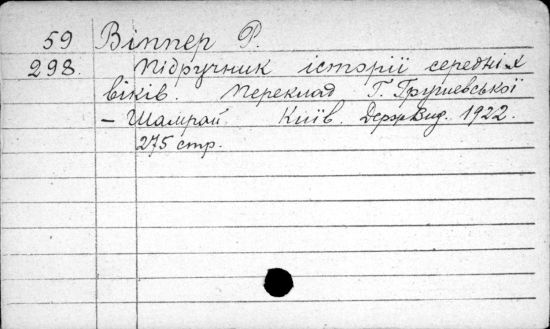 59 Віппер Р.
298. Підручник історії середніх
віків. Переклад Г. Грушевської
– Шамрай. Київ. ДержВид. 1922.
275 стр.